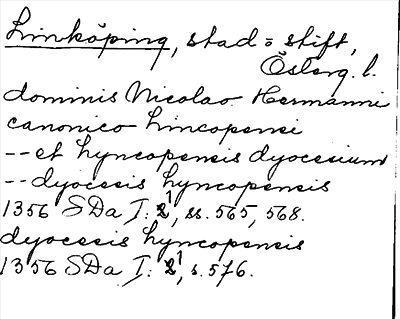 Linköping, stad = stift,
Österg. l.
dominis Nicolao Hermanni
canonico Lincopensi
-- et lyncopensis dyocesium
-- dyocesis lyncopensis
1356 SDa I: 1, ss. 565, 568.
dyocesis lyncopensis
1356 SDa I: 1, s. 576.